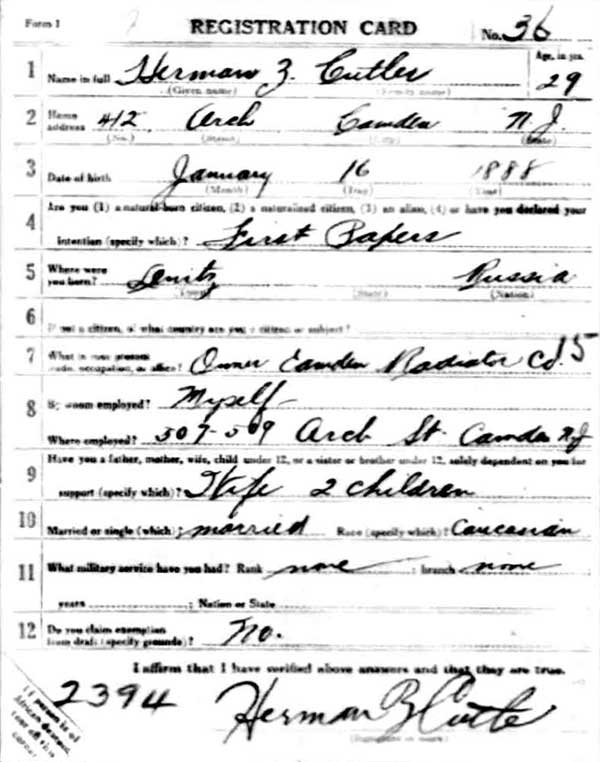 Form 1 REGISTRATION CARD No. 36
1 Name in full Herman Z. Cutler Age, in yrs. 29
(Given name) (Family name)
2 Home address 412 Arch Camden N.J.
(No.) (Street) (City) (State)
3 Date of birth January 16 1888
(Month) (Day) (Year)
Are you (1) a natural-born citizen, (2) a naturalized citizen, (3) an alien, (4) or have you declared your
4 intention (specify which)? First Papers
5 Where were you born? Russia
(Town) (State) (Nation)
6 If not a citizen, of what country are you a citizen or subject?
7 What is your present trade, occupation, or office? Owner Camden Radiator Co. 15
8 By whom employed? Myself
Where employed? 507-509 Arch St. Camden N.J
9 Have you a father, mother, wife, child under 12, or a sister or brother under 12, solely dependent on you for
support (specify which)? Wife 2 children
10 Married or single (which)? married Race (specify which)? Caucasian
11 What military service have you had? Rank none ; branch none
years ; Nation or State
12 Do you claim exemption from draft (specify grounds)? No.
I affirm that I have verified above answers and that they are true.
2394 Herman Z Cutler
(Signature or mark)
If person is of
African descent,
tear off this
corner